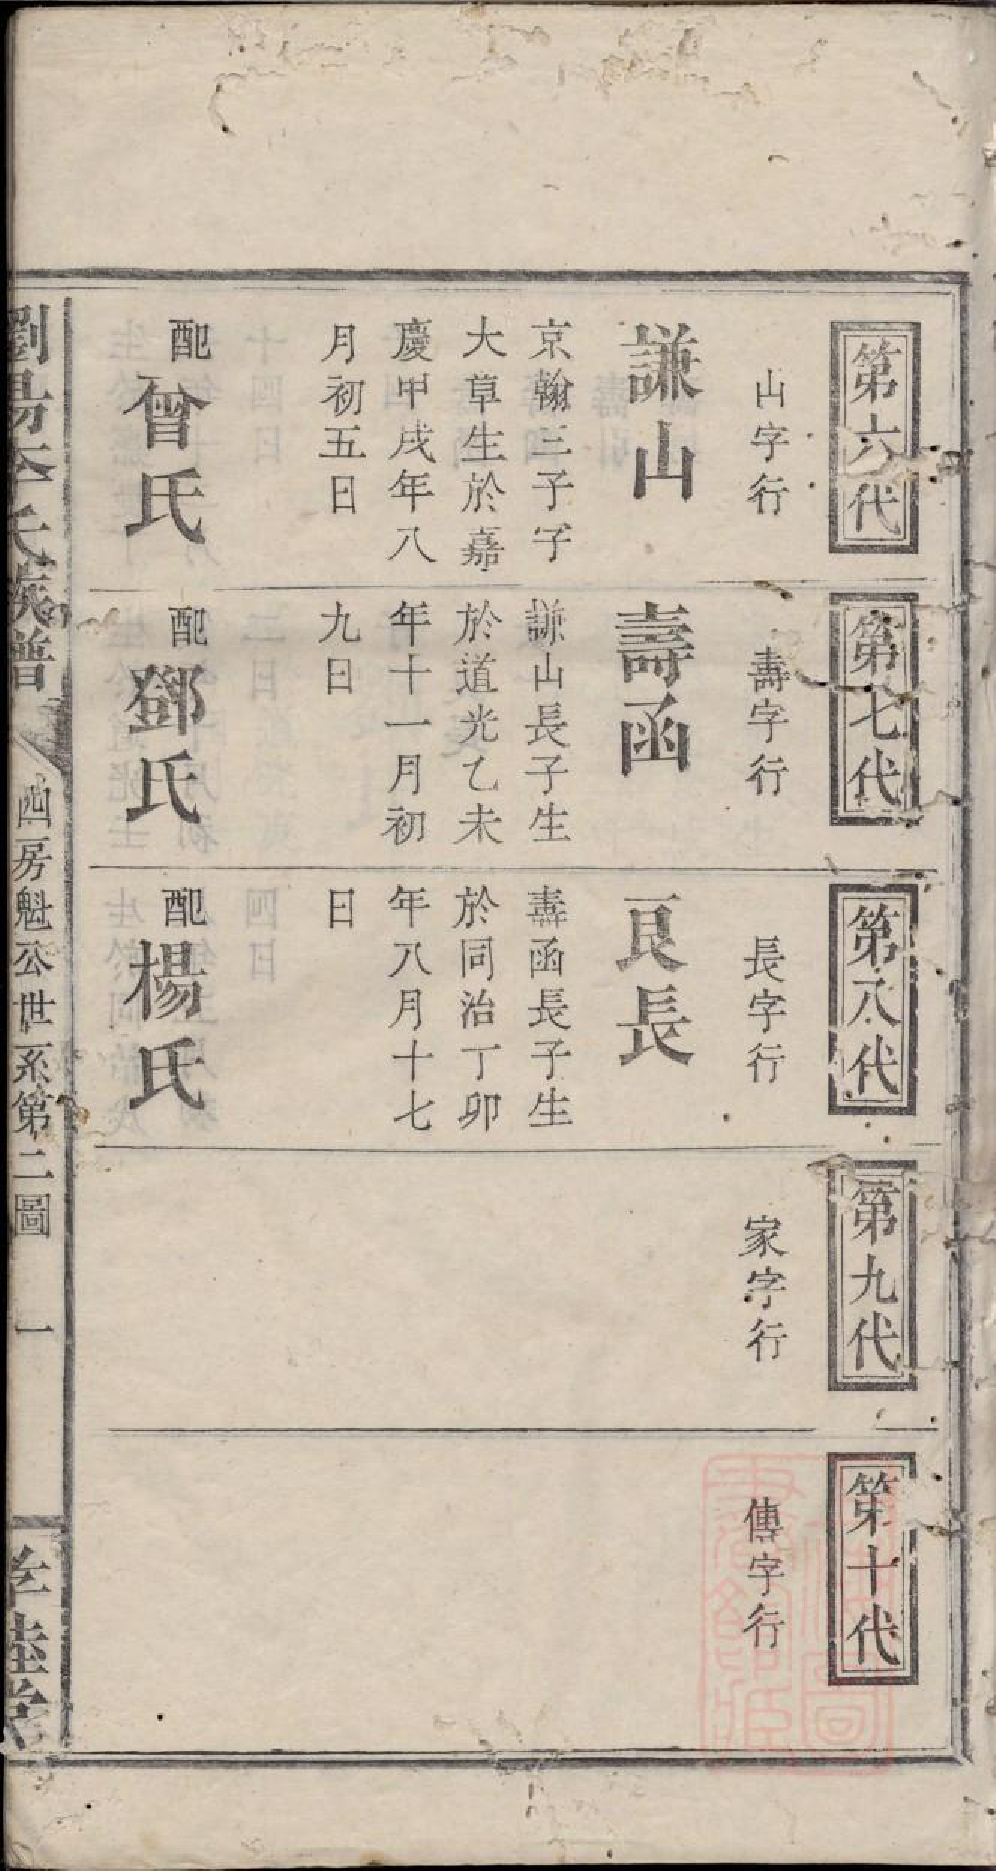 第六代
山字行
謙山
京翰三子字
大草生於嘉
慶甲戌年八
月初五日
配曾氏
第七代
壽字行
壽函
謙山長子生
於道光乙未
年十一月初
九日
配鄧氏
第八代
長字行
艮長
壽函長子生
於同治丁卯
年八月十七
日
配楊氏
第九代
家字行
第十代
傳字行
劉昜李氏族譜
四房魁公世系第二圖
一
孝睦堂